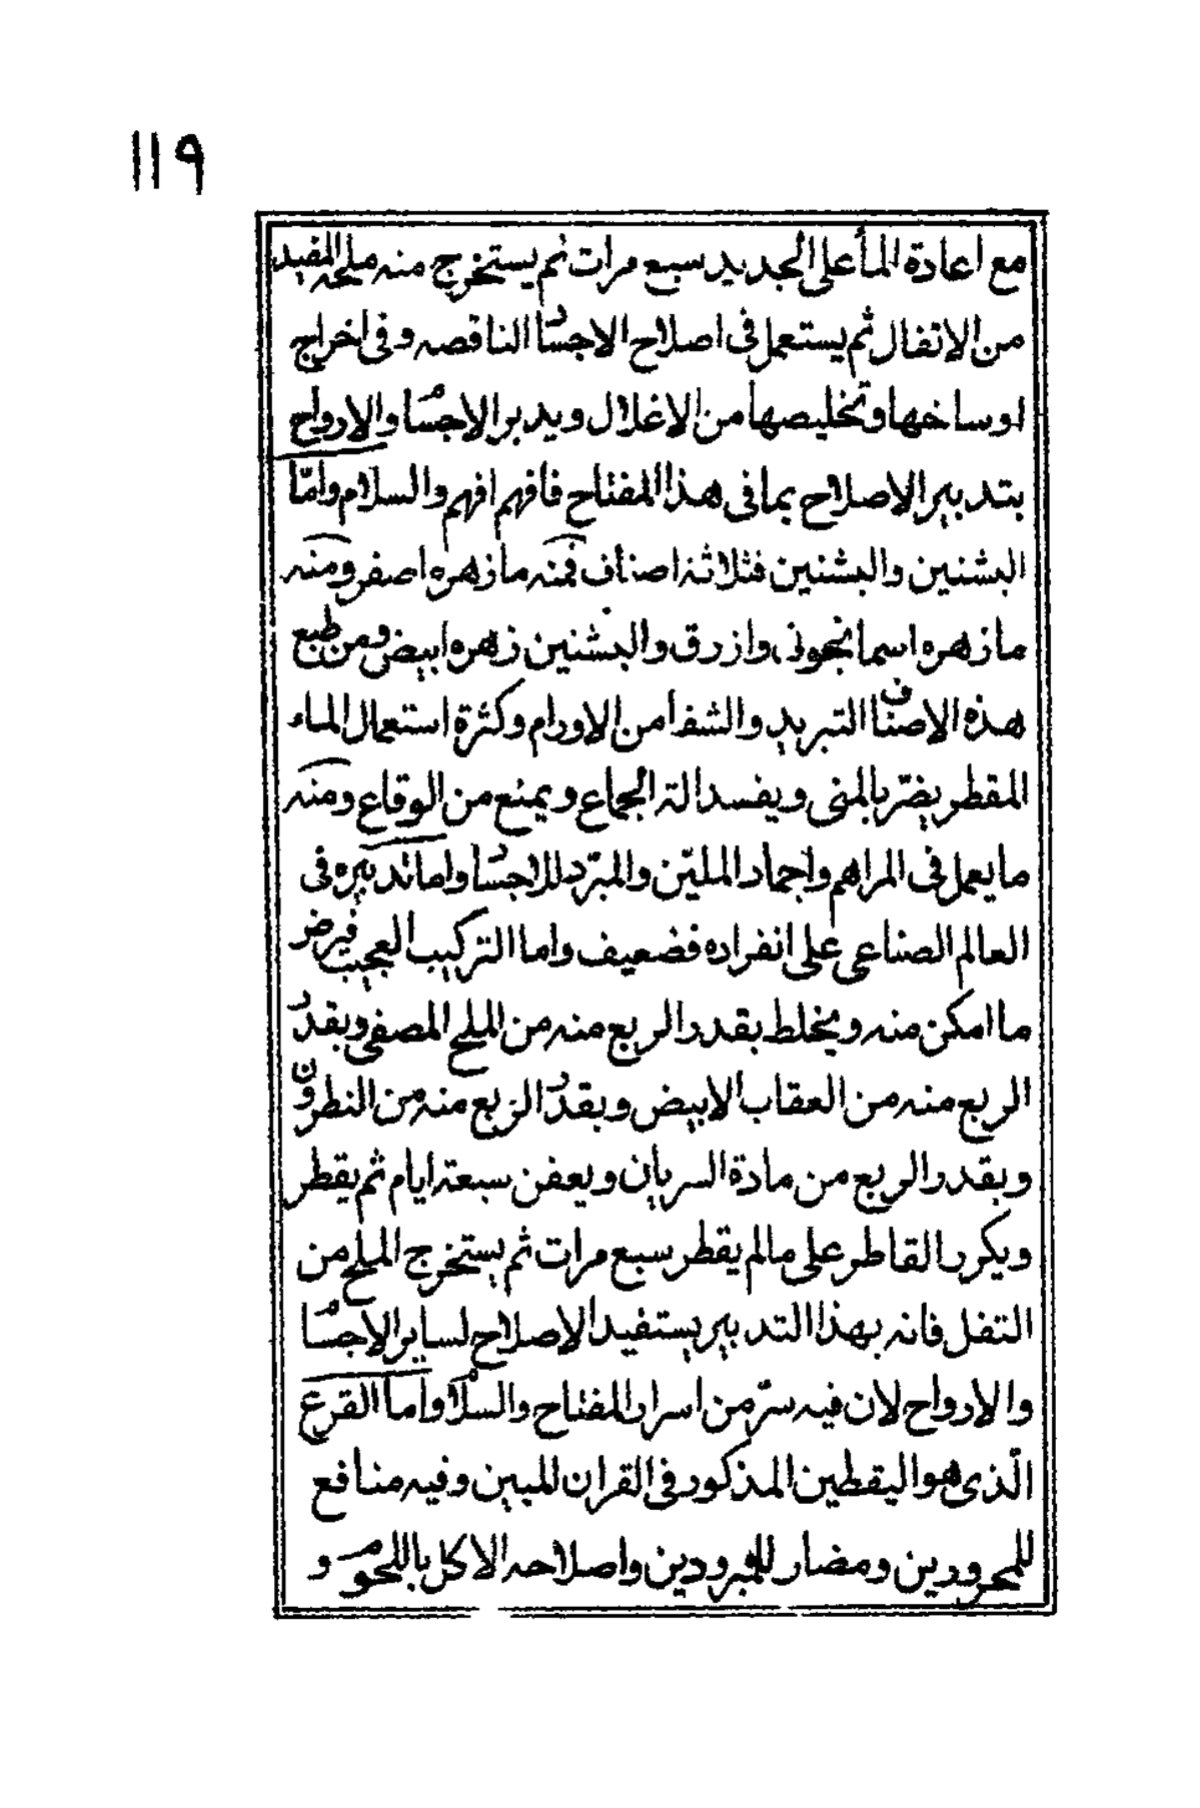 ١١٩
مع اعادة المأ على الجديد سبع مرات ثم يستخرج منه ملحه المفيد
من الاتفال ثم يستعمل فى اصلاح الاجساد الناقصه وفى اخراج
اوساخها وتخليصها من الاغلال ويدبر الاجسام والارواح
بتدبير الاصلاح بما فى هذا المفتاح فافهم افهم والسلام وامّا
البشنين والبشنين فثلاثة اصناف فمنه ما زهره اصفر ومنه
ما زهره اسمانجونى وازرق والبشنين زهره ابيض ومن طبع
هذه الاصناف التبريد والشفأ من الاورام وكثرة استعمال الماء
المقطر يضرّ بالمنى ويفسد الة الجماع ويمنع من الوقاع ومنه
ما يعمل فى المراهم واجماد المليّن والمبرّد للاجساد واما تدبيره فى
العالم الصناعى على انفراده فضعيف واما التركيب العجيب فيرض
ما امكن منه ويخلط بقدر الربع منه من الملح المصفى وبقدر
الربع منه من العقاب الابيض وبقدر الربع منه من النطرون
وبقدر الربع من مادة السريان ويعفن سبعة ايام ثم يقطر
ويكرر القاطر على مالم يقطر سبع مرات ثم يستخرج الملح من
التفل فانه بهذا التدبير يستفيد الاصلاح لساير الاجسام
والارواح لان فيه سرّ من اسرار المفتاح والسلام واما القرع
الّذى هو اليقطين المذكور فى القران المبين وفيه منافع
للمحرورين ومضار للمبرودين واصلاحه الاكل باللحوم و